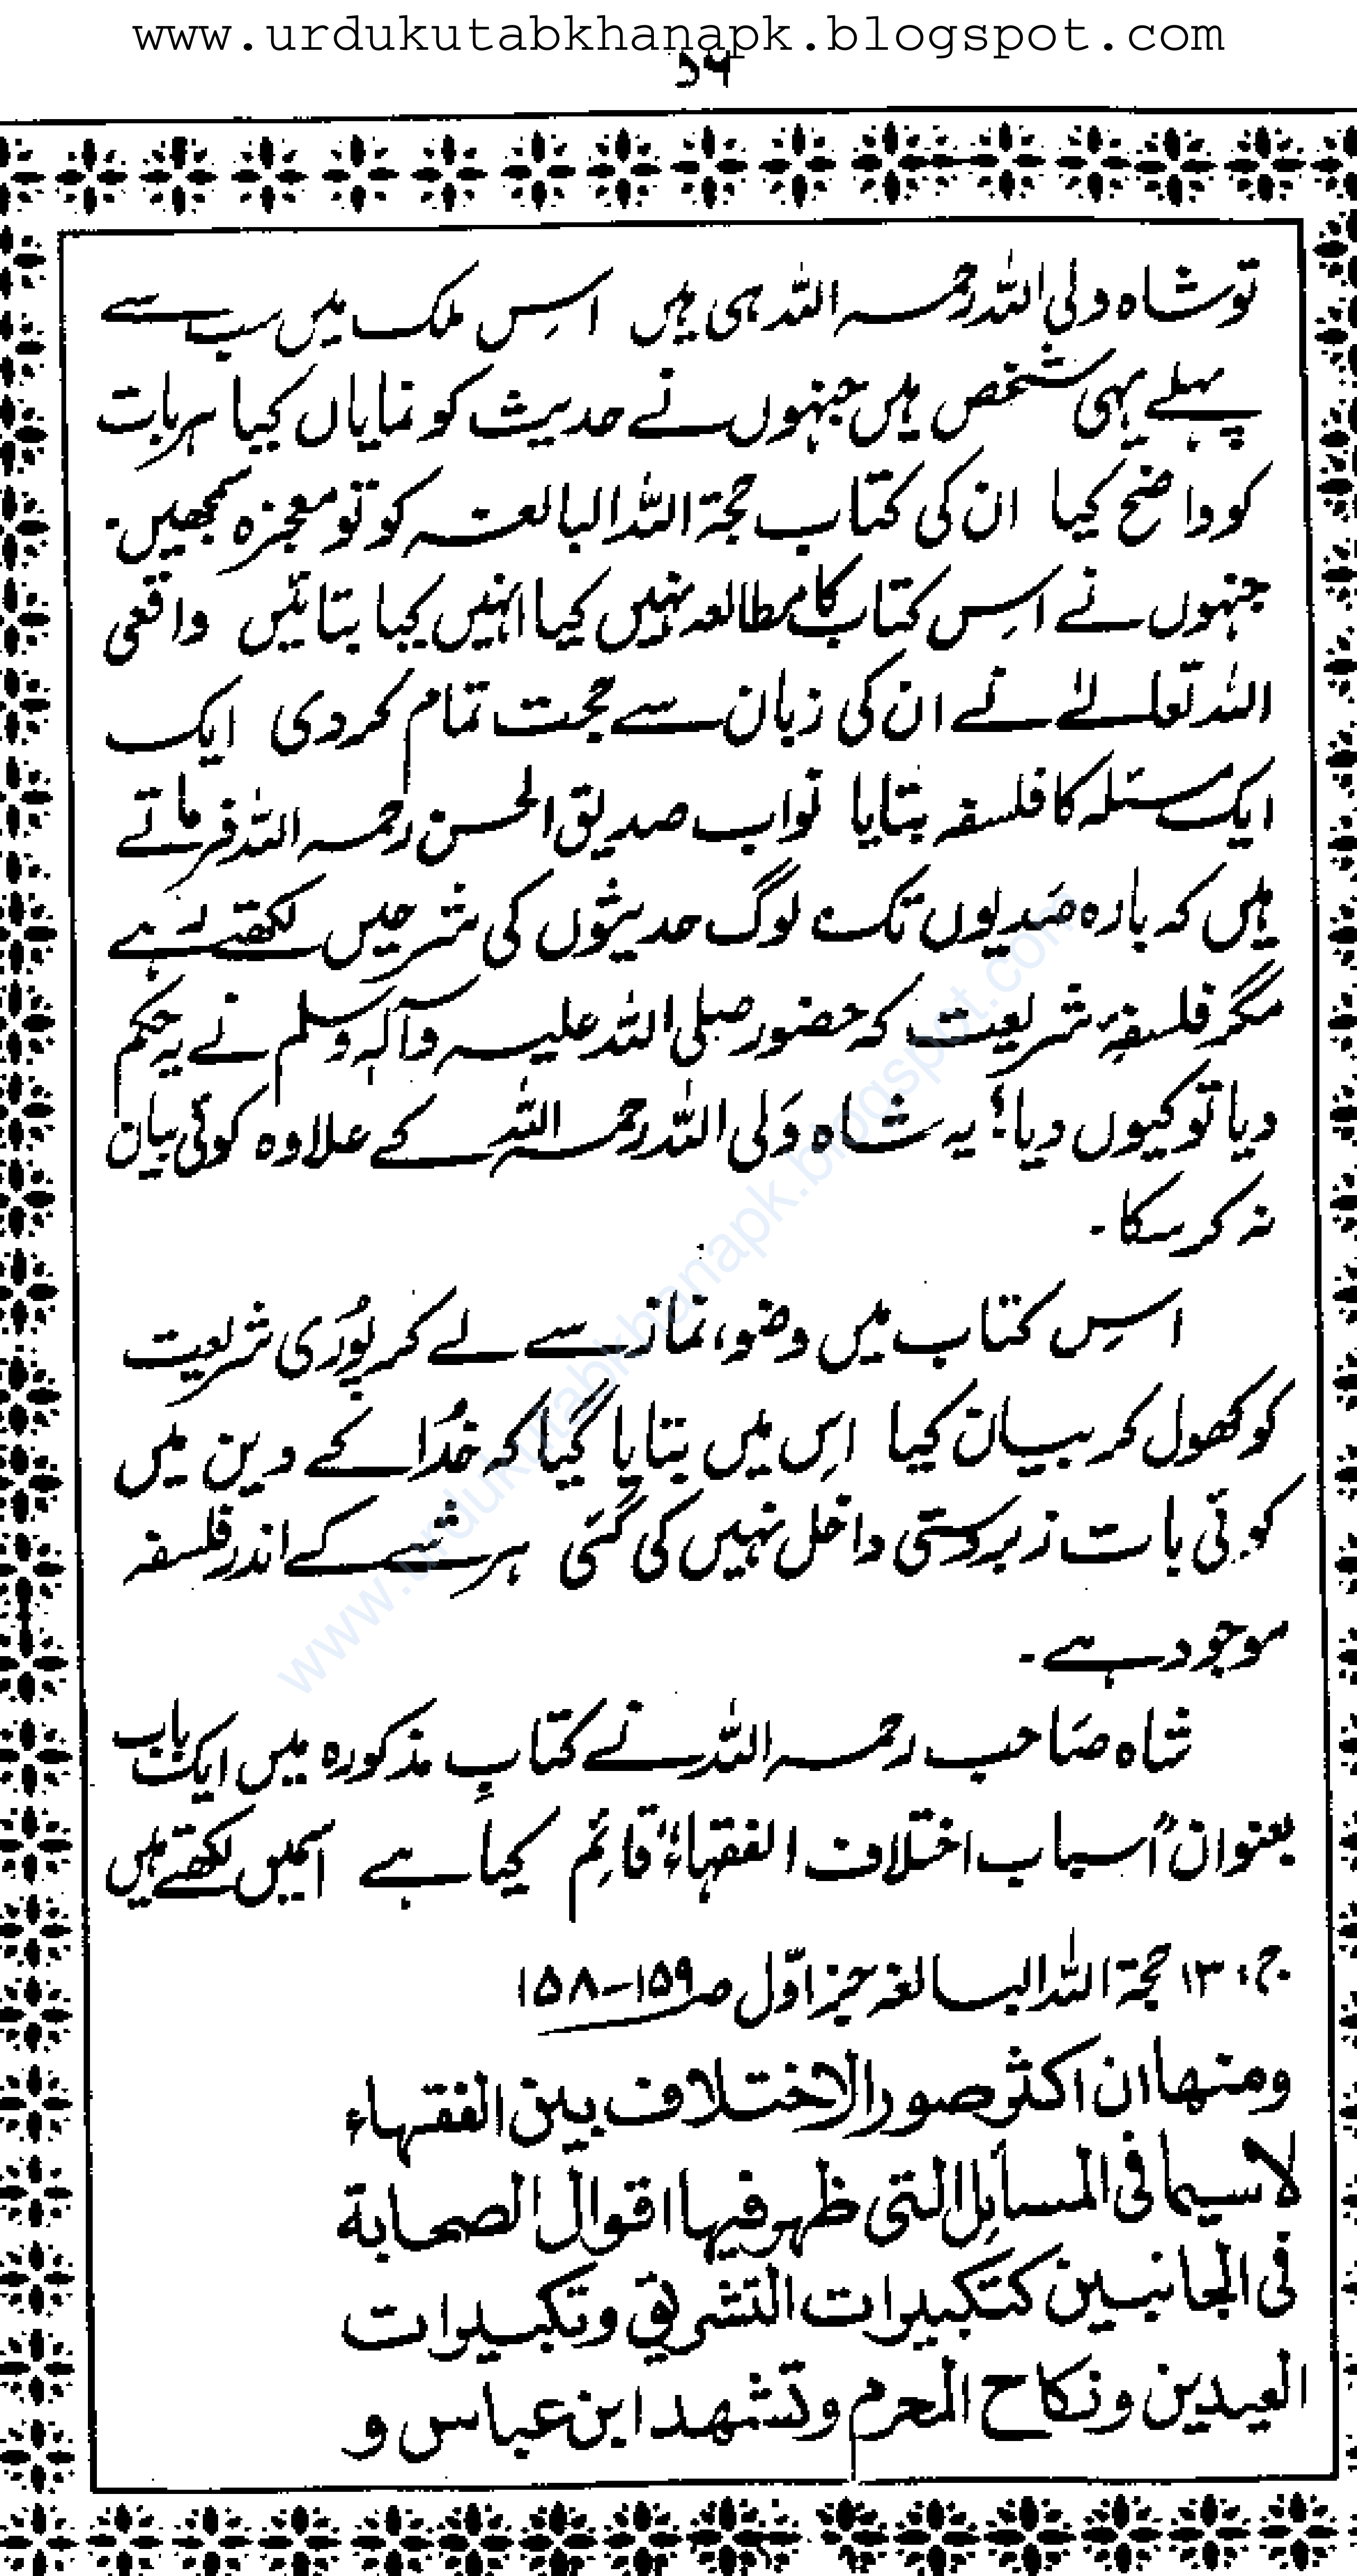 www.urdukutabkhanapk.blogspot.com
۵۶
تو شاہ ولی اللہ رحمہ اللہ ہی ہیں اس ملک میں سب سے
پہلے یہی شخص ہیں جنہوں نے حدیث کو نمایاں کیا ہر بات
کو واضح کیا ان کی کتاب حجۃ اللہ البالغہ کو تو معجزہ سمجھیں۔
جنہوں نے اِس کتاب کا مطالعہ نہیں کیا انہیں کیا بتائیں واقعی
اللہ تعالےٰ نے ان کی زبان سے حجت تمام کر دی ایک
ایک مسئلہ کا فلسفہ بتایا نواب صدیق الحسن رحمہ اللہ فرماتے
ہیں کہ بارہ صَدیوں تک لوگ حدیثوں کی شرحیں لکھتے رہے
مگر فلسفۂ شریعت کہ حضور صلی اللہ علیہ وآلہٖ وسلم نے یہ حکم
دیا تو کیوں دیا؟ یہ شاہ وَلی اللہ رحمہ اللہ کے علاوہ کوئی بیان
نہ کر سکا۔
اِس کتاب میں وضو، نماز سے لے کر پُوری شریعت
کو کھول کر بیان کیا اِس میں بتایا گیا کہ خُدا کے دین میں
کوئی بات زبردستی داخل نہیں کی گئی ہر شے کے اندر فلسفہ
موجود ہے۔
شاہ صَاحب رحمہ اللہ نے کتابِ مذکورہ میں ایک باب
بعنوان "اسباب اختلاف الفقہاء" قائم کیا ہے اسمیں لکھتے ہیں
ج: ۱۳ حجۃ اللہ البالغہ جز اوّل صـ ۱۵۹-۱۵۸
ومنها ان اكثر صور الاختلاف بين الفقهاء
لا سيما فى المسائل التى ظهر فيها اقوال الصحابة
فى الجانبين كتكبيرات التشريق وتكبيرات
العيدين ونكاح المحرم وتشهد ابن عباس و
www.urdukutabkhanapk.blogspot.com